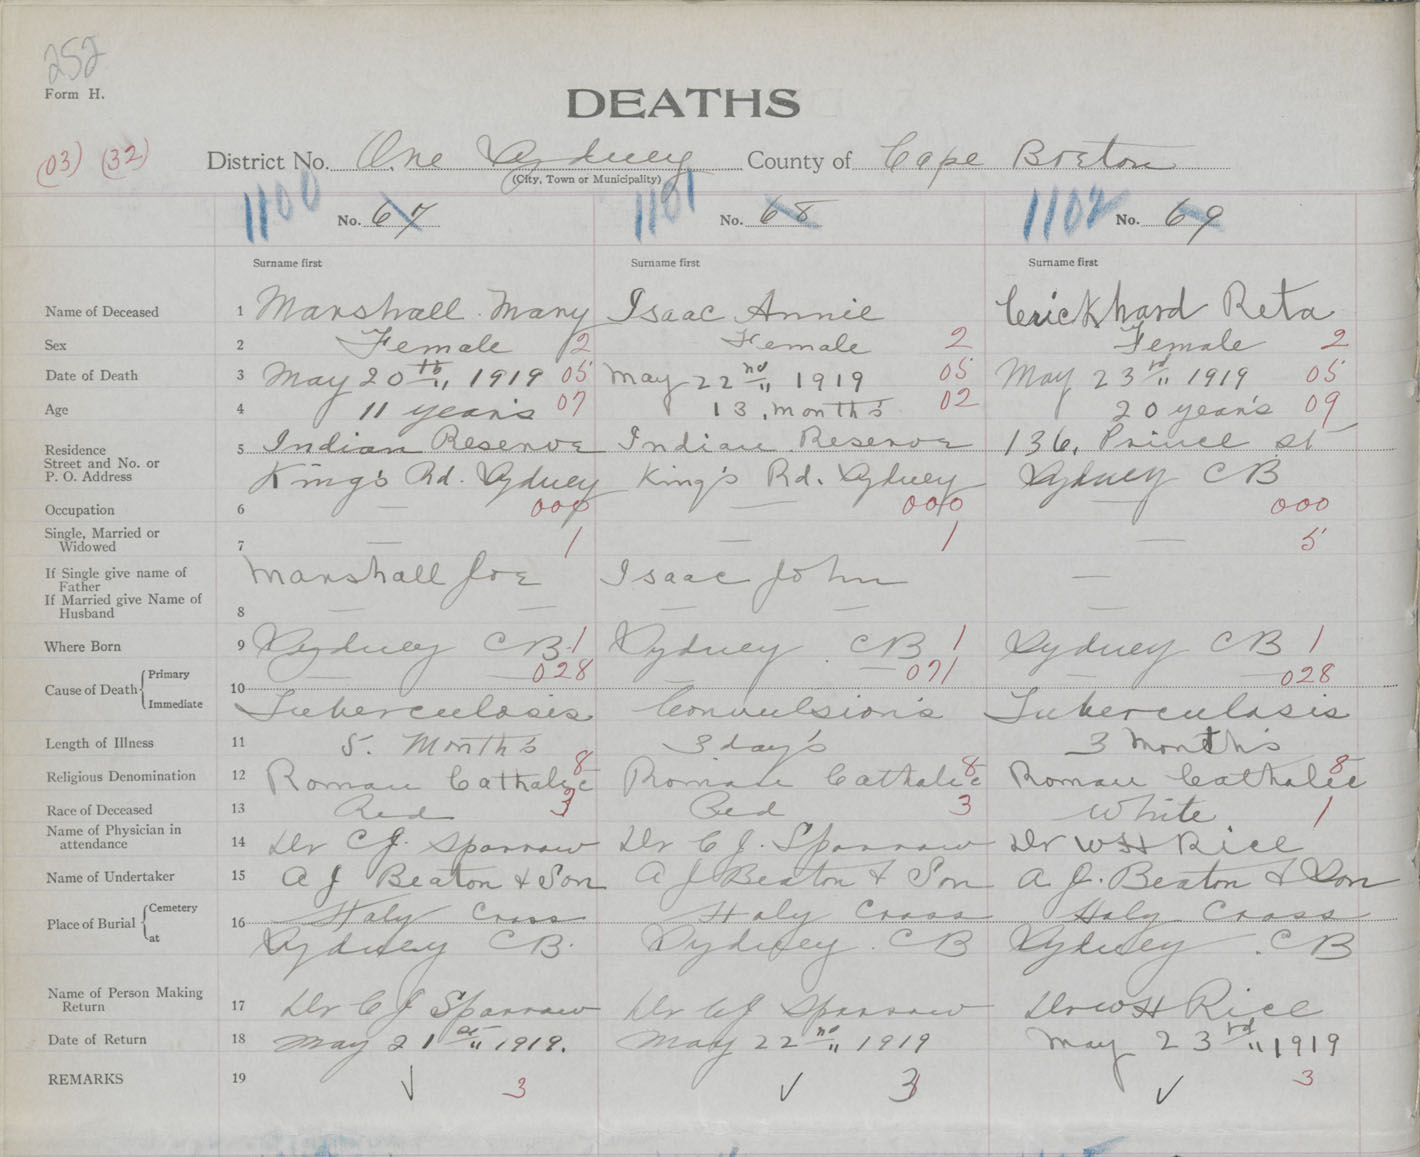 252
Form H.
DEATHS
(03) (32)
District No. One Sydney County of Cape Breton
(City, Town or Municipality)
1100 No. 67 1101 No. 68 1102 No. 69
Surname first Surname first Surname first
Name of Deceased 1 Marshall Mary Isaac Annie Crickhard Reta
Sex 2 Female 2 Female 2 Female 2
Date of Death 3 May 20th " 1919 05 May 22nd " 1919 05 May 23rd " 1919 05
Age 4 11 year's 07 13 month's 02 20 year's 09
Residence Street and No. or P. O. Address 5 Indian Reserve Indian Reserve 136, Prince St
King's Rd. Sydney King's Rd. Sydney Sydney CB
Occupation 6 — 000 — 000 — 000
Single, Married or Widowed 7 — 1 — 1 — 5
If Single give name of Father Marshall Joe Isaac John —
If Married give Name of Husband 8 — — — — —
Where Born 9 Sydney CB. 1 Sydney. CB 1 Sydney CB 1
Cause of Death Primary 10 — 028 — 071 — 028
Immediate Tuberculosis Convulsion's Tuberculosis
Length of Illness 11 5. Month's 3 day's 3 Month's
Religious Denomination 12 Roman Catholic 8 Roman Catholic 8 Roman Catholic 8
Race of Deceased 13 Red 3 Red 3 White 1
Name of Physician in attendance 14 Dr C J. Sparrow Dr C J. Sparrow Dr W H Rice
Name of Undertaker 15 A J Beaton & Son A J Beaton & Son A. J. Beaton & Son
Place of Burial Cemetery 16 Holy Cross Holy Cross Holy Cross
at Sydney CB. Sydney. CB Sydney. CB
Name of Person Making Return 17 Dr C J Sparrow Dr C J Sparrow Dr W H Rice
Date of Return 18 May 21st " 1919. May 22nd " 1919 May 23rd " 1919
REMARKS 19 ✓ 3 ✓ 3 ✓ 3